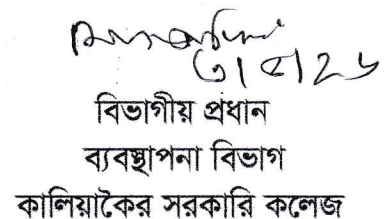 বিভাগীয় প্রধান
ব্যবস্থাপনা বিভাগ
কালিয়াকৈর সরকারি কলেজ